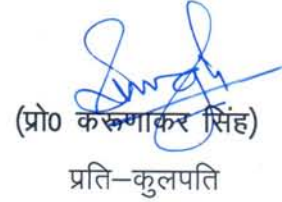 (प्रो0 करूणाकर सिंह)
प्रति–कुलपति